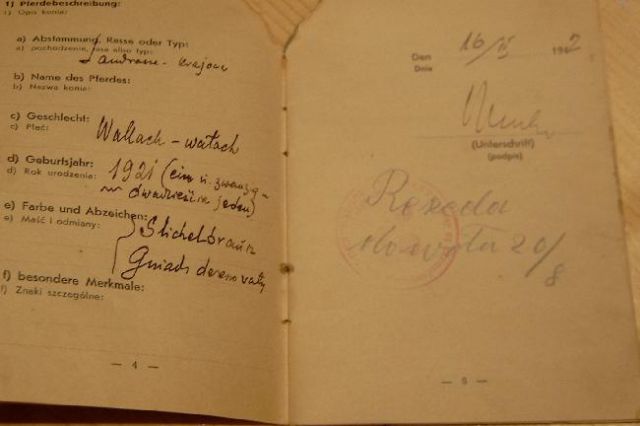 1) Pferdebeschreibung:
1) Opis konia:
a) Abstammung, Rasse oder Typ:
a) pochodzenie, rasa albo typ:
Landrasse - krajowa
b) Name des Pferdes:
b) Nazwa konia:
c) Geschlecht:
c) Płeć:
Wallach - wałach
d) Geburtsjahr:
d) Rok urodzenia:
1921 (ein u. zwanzig -
dwadzieścia jeden)
e) Farbe und Abzeichen:
e) Maść i odmiany:
Stichelbraun
Gniado deresowaty
f) besondere Merkmale:
f) Znaki szczególne:
— 4 —
Den
Dnia
16/II 1942
(Unterschrift)
(podpis)
Rezeda
20/
8